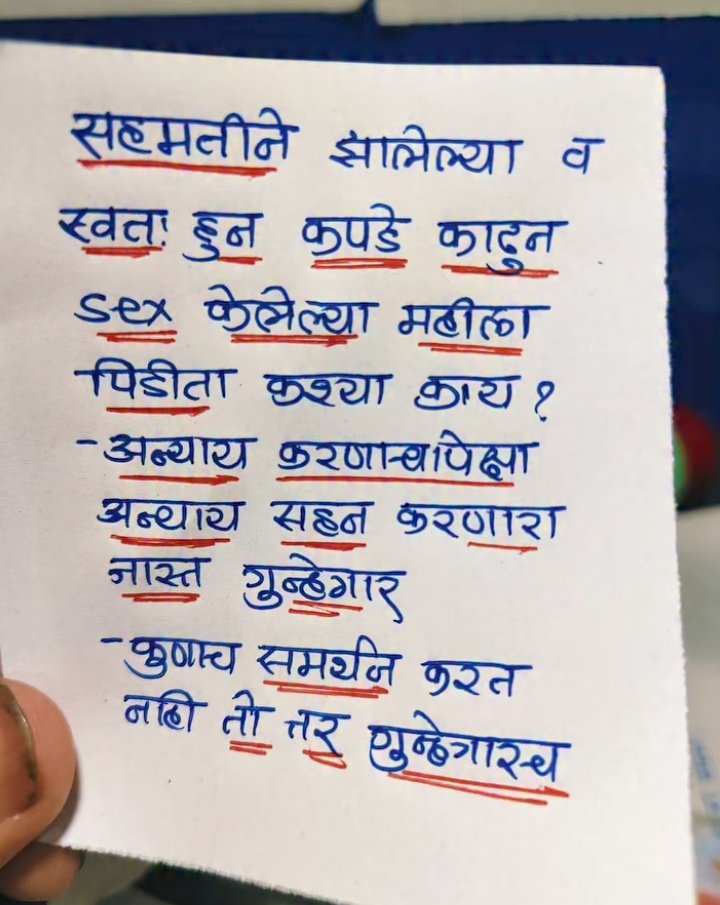 सहमतीने झालेल्या व
स्वतः हुन कपडे काढुन
sex केलेल्या महीला
पिडीता कश्या काय ?
- अन्याय करणाऱ्यापेक्षा
अन्याय सहन करणारा
जास्त गुन्हेगार
- कुणाच समर्थन करत
नाही तो तर गुन्हेगारच